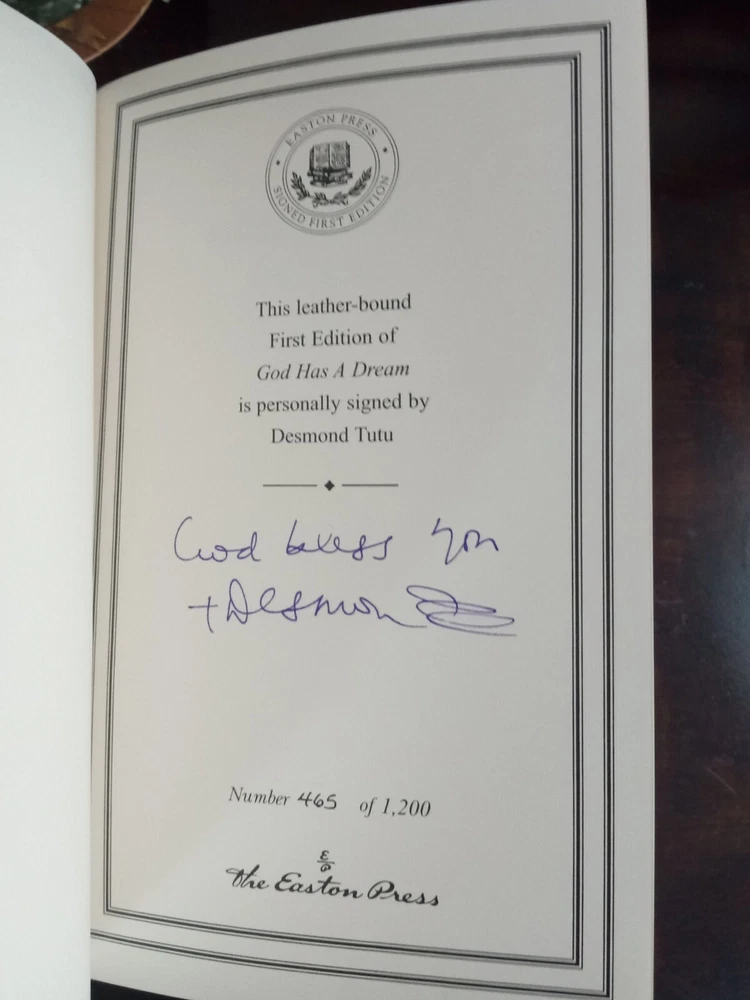 EASTON PRESS
SIGNED FIRST EDITION
This leather-bound
First Edition of
God Has A Dream
is personally signed by
Desmond Tutu
God bless you
+Desmond
Number 465 of 1,200
The Easton Press